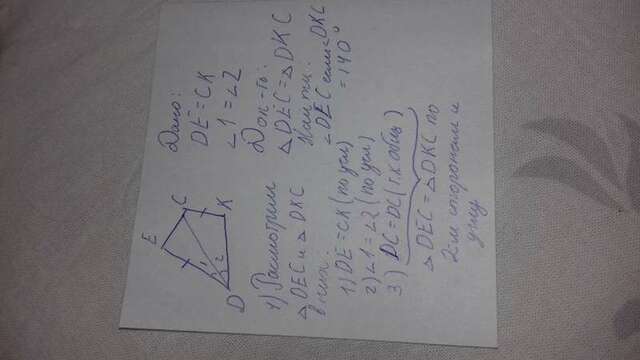 E
C
D
K
1
2
Дано:
DE = CK
∠1 = ∠2
Док-ть:
△DEC = △DKC
Найти:
∠DEC если ∠DKC
= 140°
1) Расмотрим
△DEC и △DKC
В них:
1) DE = CK (по усл)
2) ∠1 = ∠2 (по усл)
3) DC = DC (т.к общ)
△DEC = △DKC по
2-м сторонам и
углу